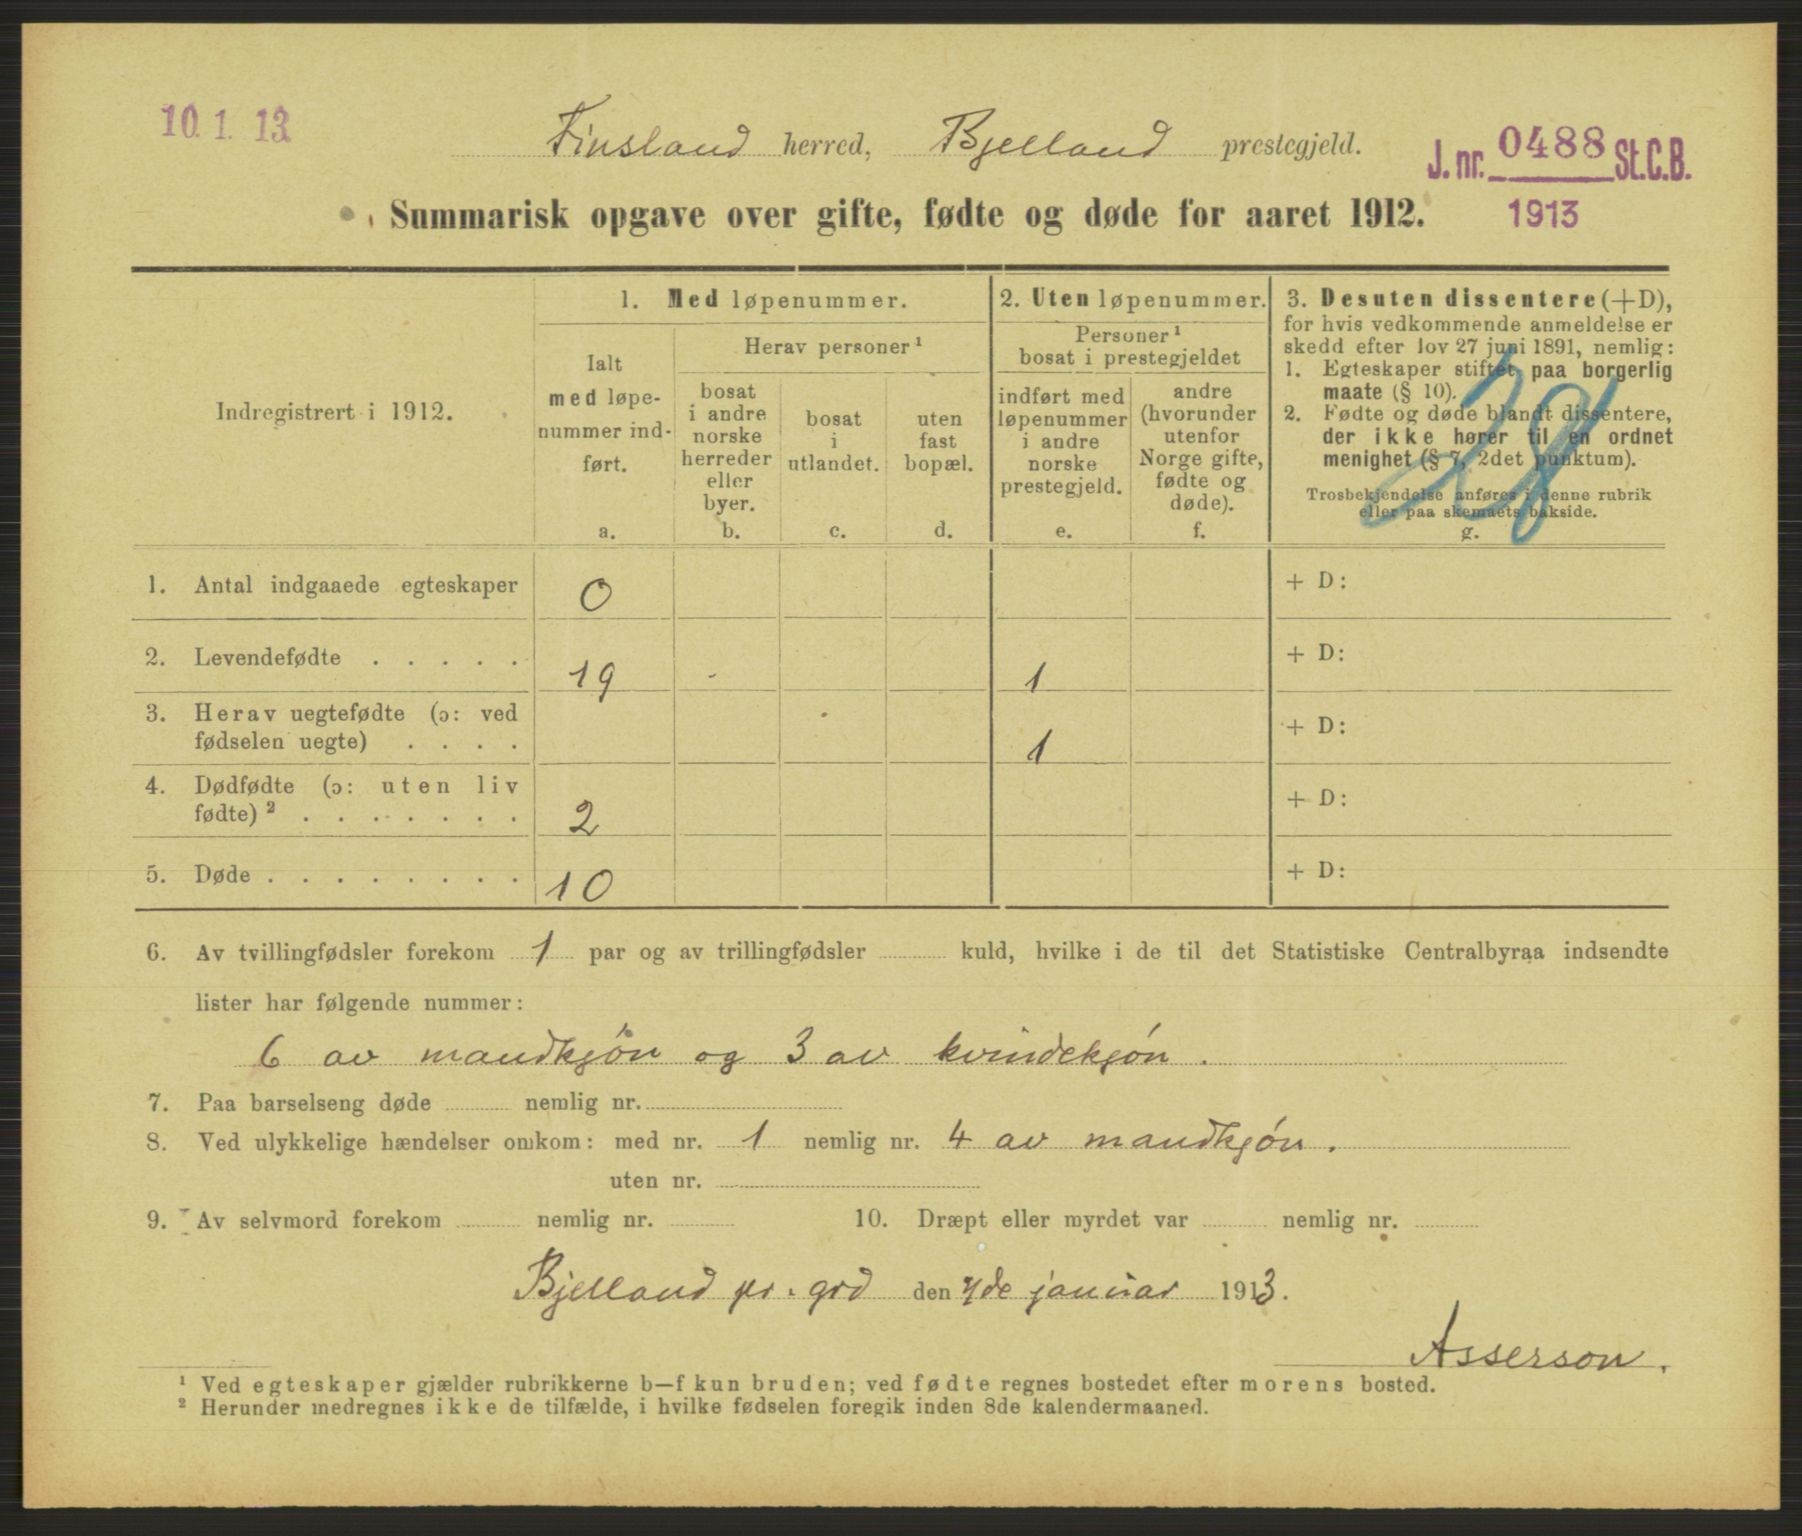 10. 1. 13
Finsland herred, Bjelland prestegjeld.
J. nr. 0488 St.C.B.
1913
Summarisk opgave over gifte, fødte og døde for aaret 1912.
Indregistrert i 1912.
1. Med løpenummer.
Ialt
med løpe-
nummer ind-
ført.
a.
Herav personer ¹
bosat
i andre
norske
herreder
eller
byer.
b.
bosat
i
utlandet.
c.
uten
fast
bopæl.
d.
2. Uten løpenummer.
Personer ¹
bosat i prestegjeldet
indført med
løpenummer
i andre
norske
prestegjeld.
e.
andre
(hvorunder
utenfor
Norge gifte,
fødte og
døde).
f.
3. Desuten dissentere (+D),
for hvis vedkommende anmeldelse er
skedd efter lov 27 juni 1891, nemlig:
1. Egteskaper stiftet paa borgerlig
maate (§ 10).
2. Fødte og døde blandt dissentere,
der ikke hører til en ordnet
menighet (§ 7, 2det punktum).
Trosbekjendelse anføres i denne rubrik
eller paa skemaets bakside.
g.
1. Antal indgaaede egteskaper 0 + D:
2. Levendefødte . . . . . 19 - 1 + D:
3. Herav uegtefødte (ɔ: ved
fødselen uegte) . . . . 1 + D:
4. Dødfødte (ɔ: uten liv
fødte) ² . . . . . . . 2 + D:
5. Døde . . . . . . . . 10 + D:
6. Av tvillingfødsler forekom 1 par og av trillingfødsler kuld, hvilke i de til det Statistiske Centralbyraa indsendte
lister har følgende nummer:
6 av mandkjön og 3 av kvindekjón.
7. Paa barselseng døde nemlig nr.
8. Ved ulykkelige hændelser omkom: med nr. 1 nemlig nr. 4 av mandkjón.
uten nr.
9. Av selvmord forekom nemlig nr. 10. Dræpt eller myrdet var nemlig nr.
Bjelland pr. grd den 7de januar 1913.
Asserson.
¹ Ved egteskaper gjælder rubrikkerne b—f kun bruden; ved fødte regnes bostedet efter morens bosted.
² Herunder medregnes ikke de tilfælde, i hvilke fødselen foregik inden 8de kalendermaaned.